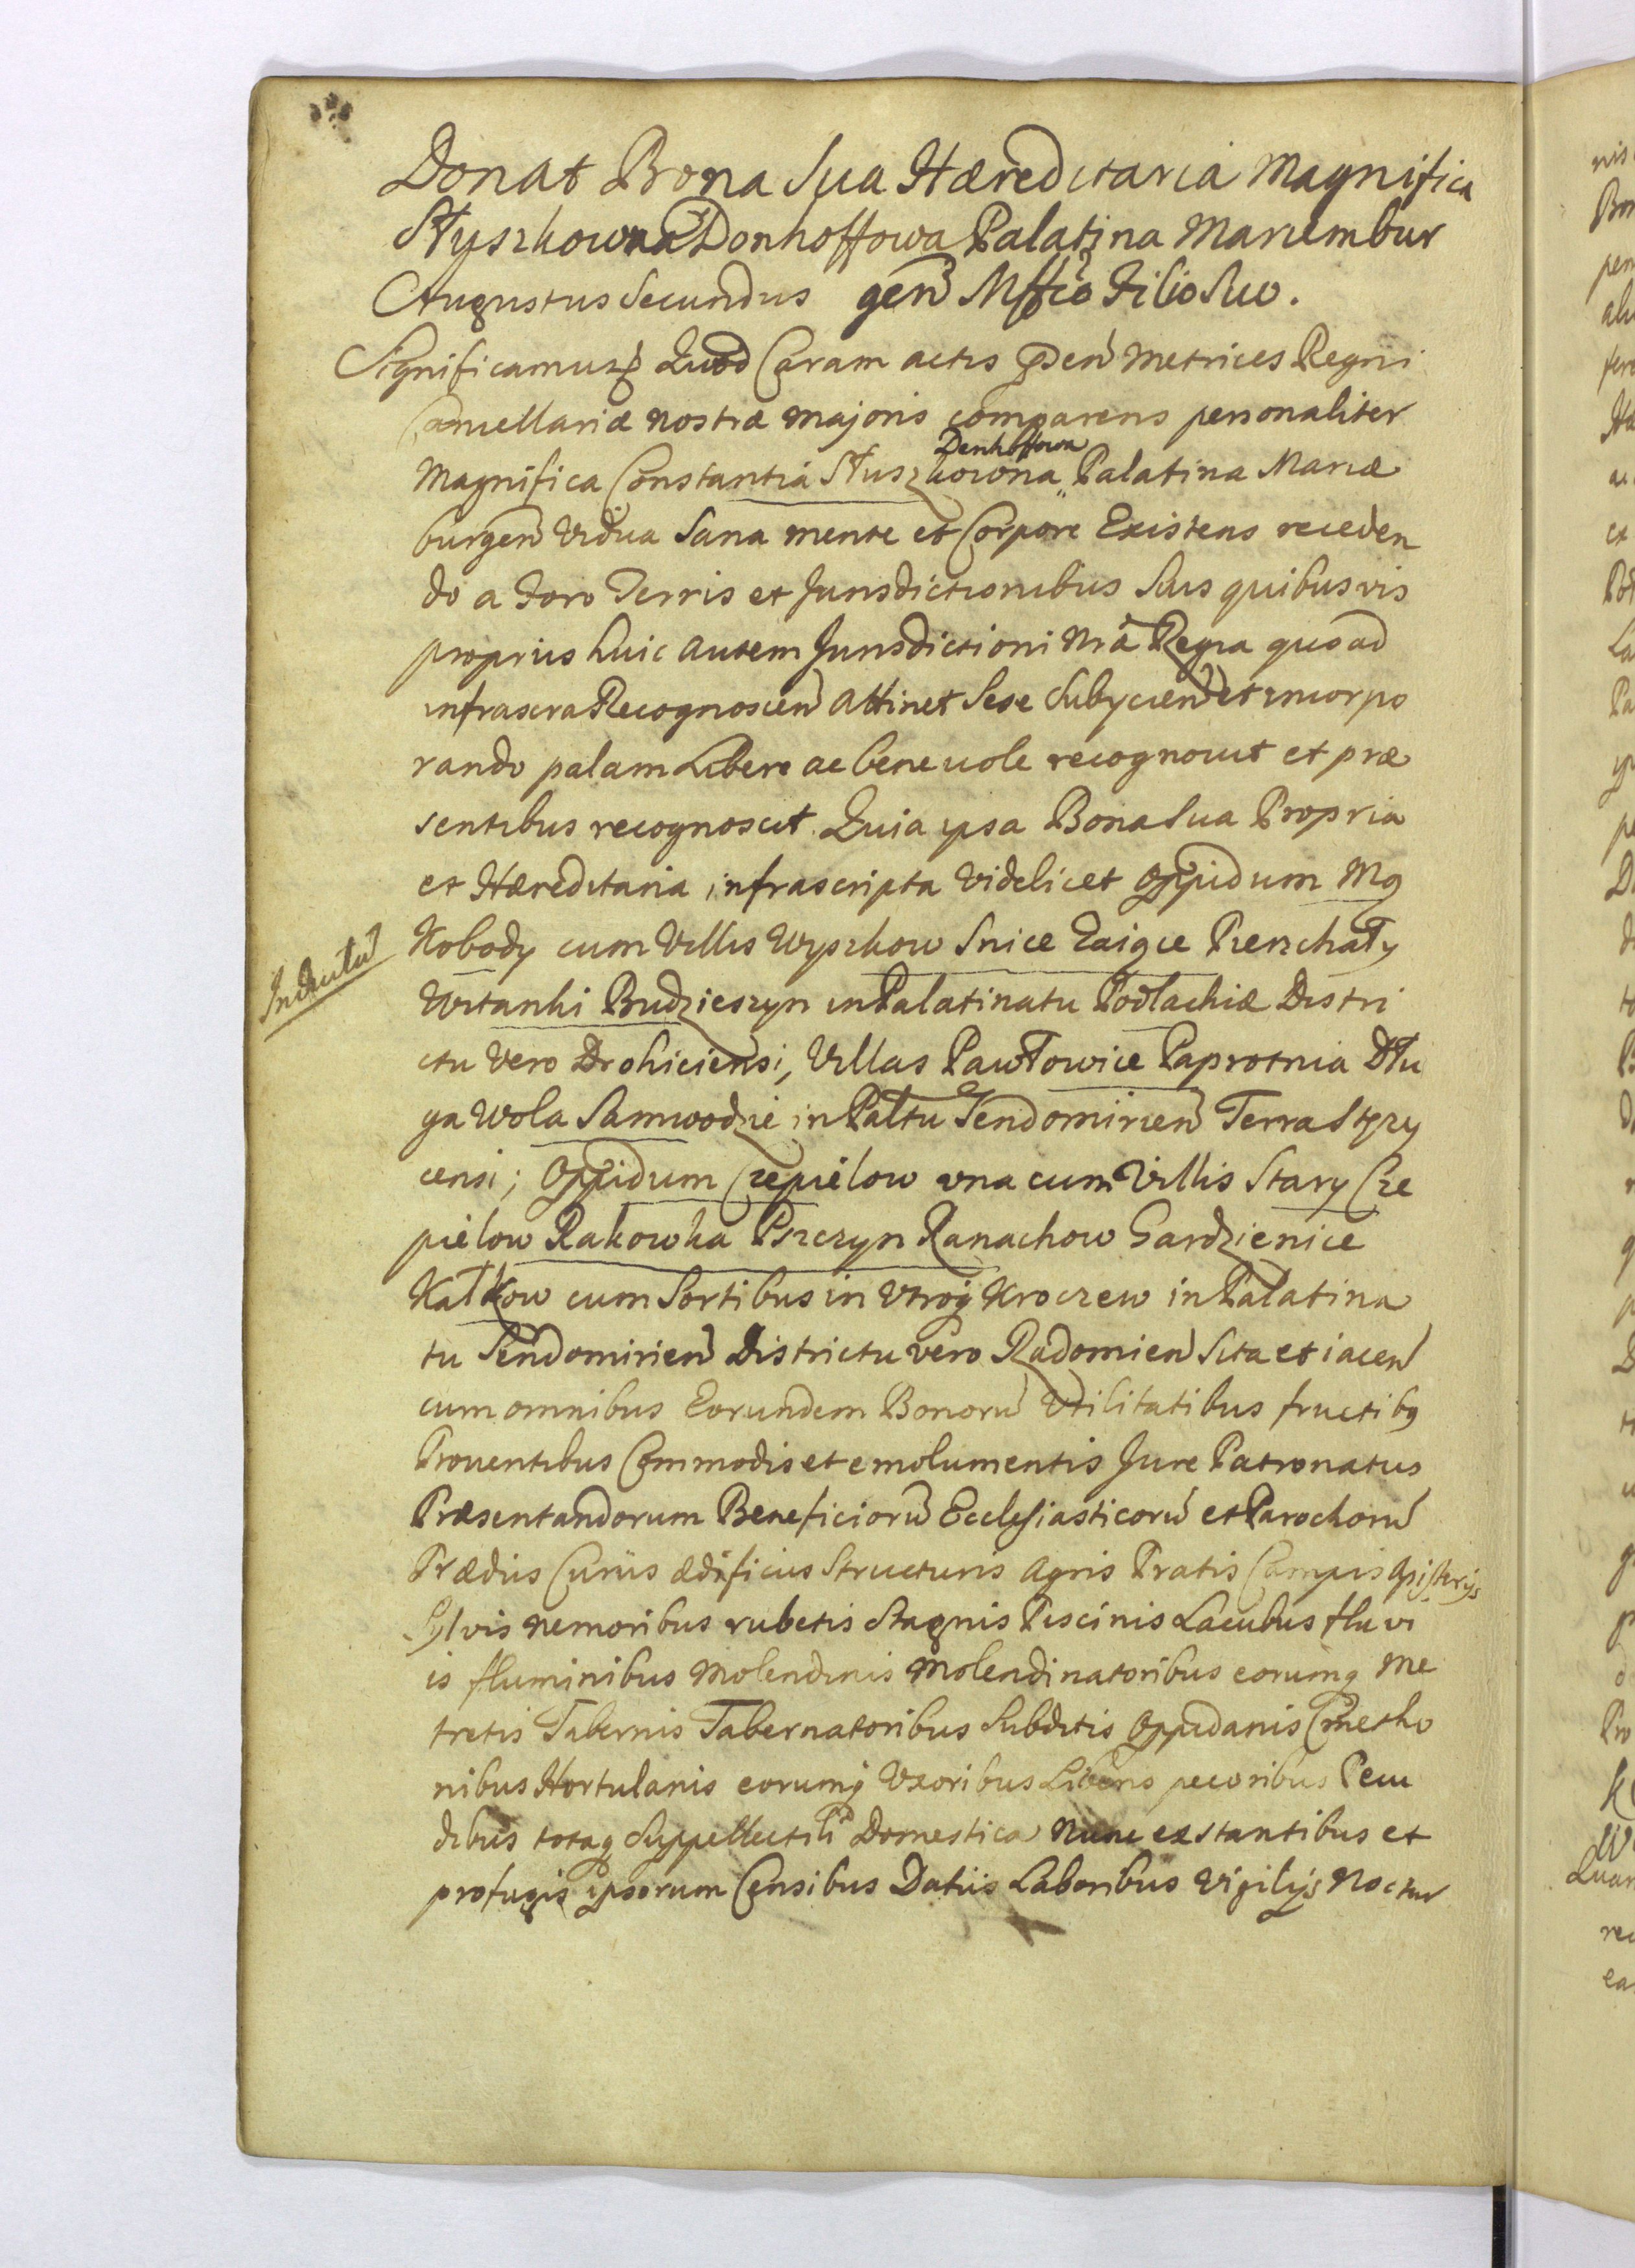 Donat Bona Sua Hæreditaria Magnifica
Słyszkowna Donhoffowa Palatina Mariembur
Augustus Secundus gen Mffco Filio Suo.
Significamus Quod Coram actis gden Metrices Regni
Cancellariæ nostræ majoris comparens personaliter
Denhoffowa
Magnifica Constantia Słuszkowna Palatina Mariæ
burgen Vidua Sana mente et Corpore Existens receden
do a Foro Terris et Jurisdictionibus Suis quibusvis
proprius huic autem Jurisdictioni Nrã Regia quoad
infrascra Recognoscen attinet Sese Subyciend et incorpo
rando palam Libere ac beneuole recognouit et præ
sentibus recognoscit. Quia ipsa Bona Sua Propria
et Hæreditaria infrascripta Videlicet Oppidum Mo
Kobody cum Villis Wyszkow Snice Zaigce Pierzchały
Indentur
Witanki Budzieszyn in Palatinatu Podlachiæ Distri
ctu Vero Drohiciensi, Villas Pawłowice Paprotnia Dłu
ga Wola Samwodzie in Paltu Sendomirien Terra Stęzy
censi; Oppidum Czepielow una cum Villis Stary Cze
pielow Rakowka Pszczyn Kanachow Gardzienice
Kałkow cum Sortibus in Vtroq Kroczew in Palatina
tu Sendomirien Districtu vero Radomien Sita et iacen
cum omnibus Eorundem Bonoru Vtilitatibus fructibq
Prouentibus Commodis et emolumentis Jure Patronatus
Præsentandorum Beneficioru Ecclesiasticoru et Parochoru
Prædiis Curiis ædificiis Structuris Agris Pratis Campis
Sylvis nemoribus rubetis Stagnis Piscinis Lacubus fluvi
is fluminibus Molendinis Molendinatoribus eorumq Me
tretis Tabernis Tabernatoribus Subditis Oppidanis Cmetho
nibus Hortulanis eorumq Vxoribus Liberis pecoribus Pecu
dibus totaq Suppellectili Domestica Nunc exstantibus et
profugis ipsorum Censibus Datiis Laboribus Vigilijs Noctur